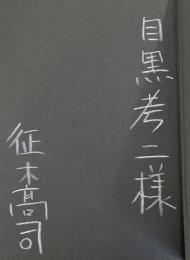 目黒考二様
征木高司